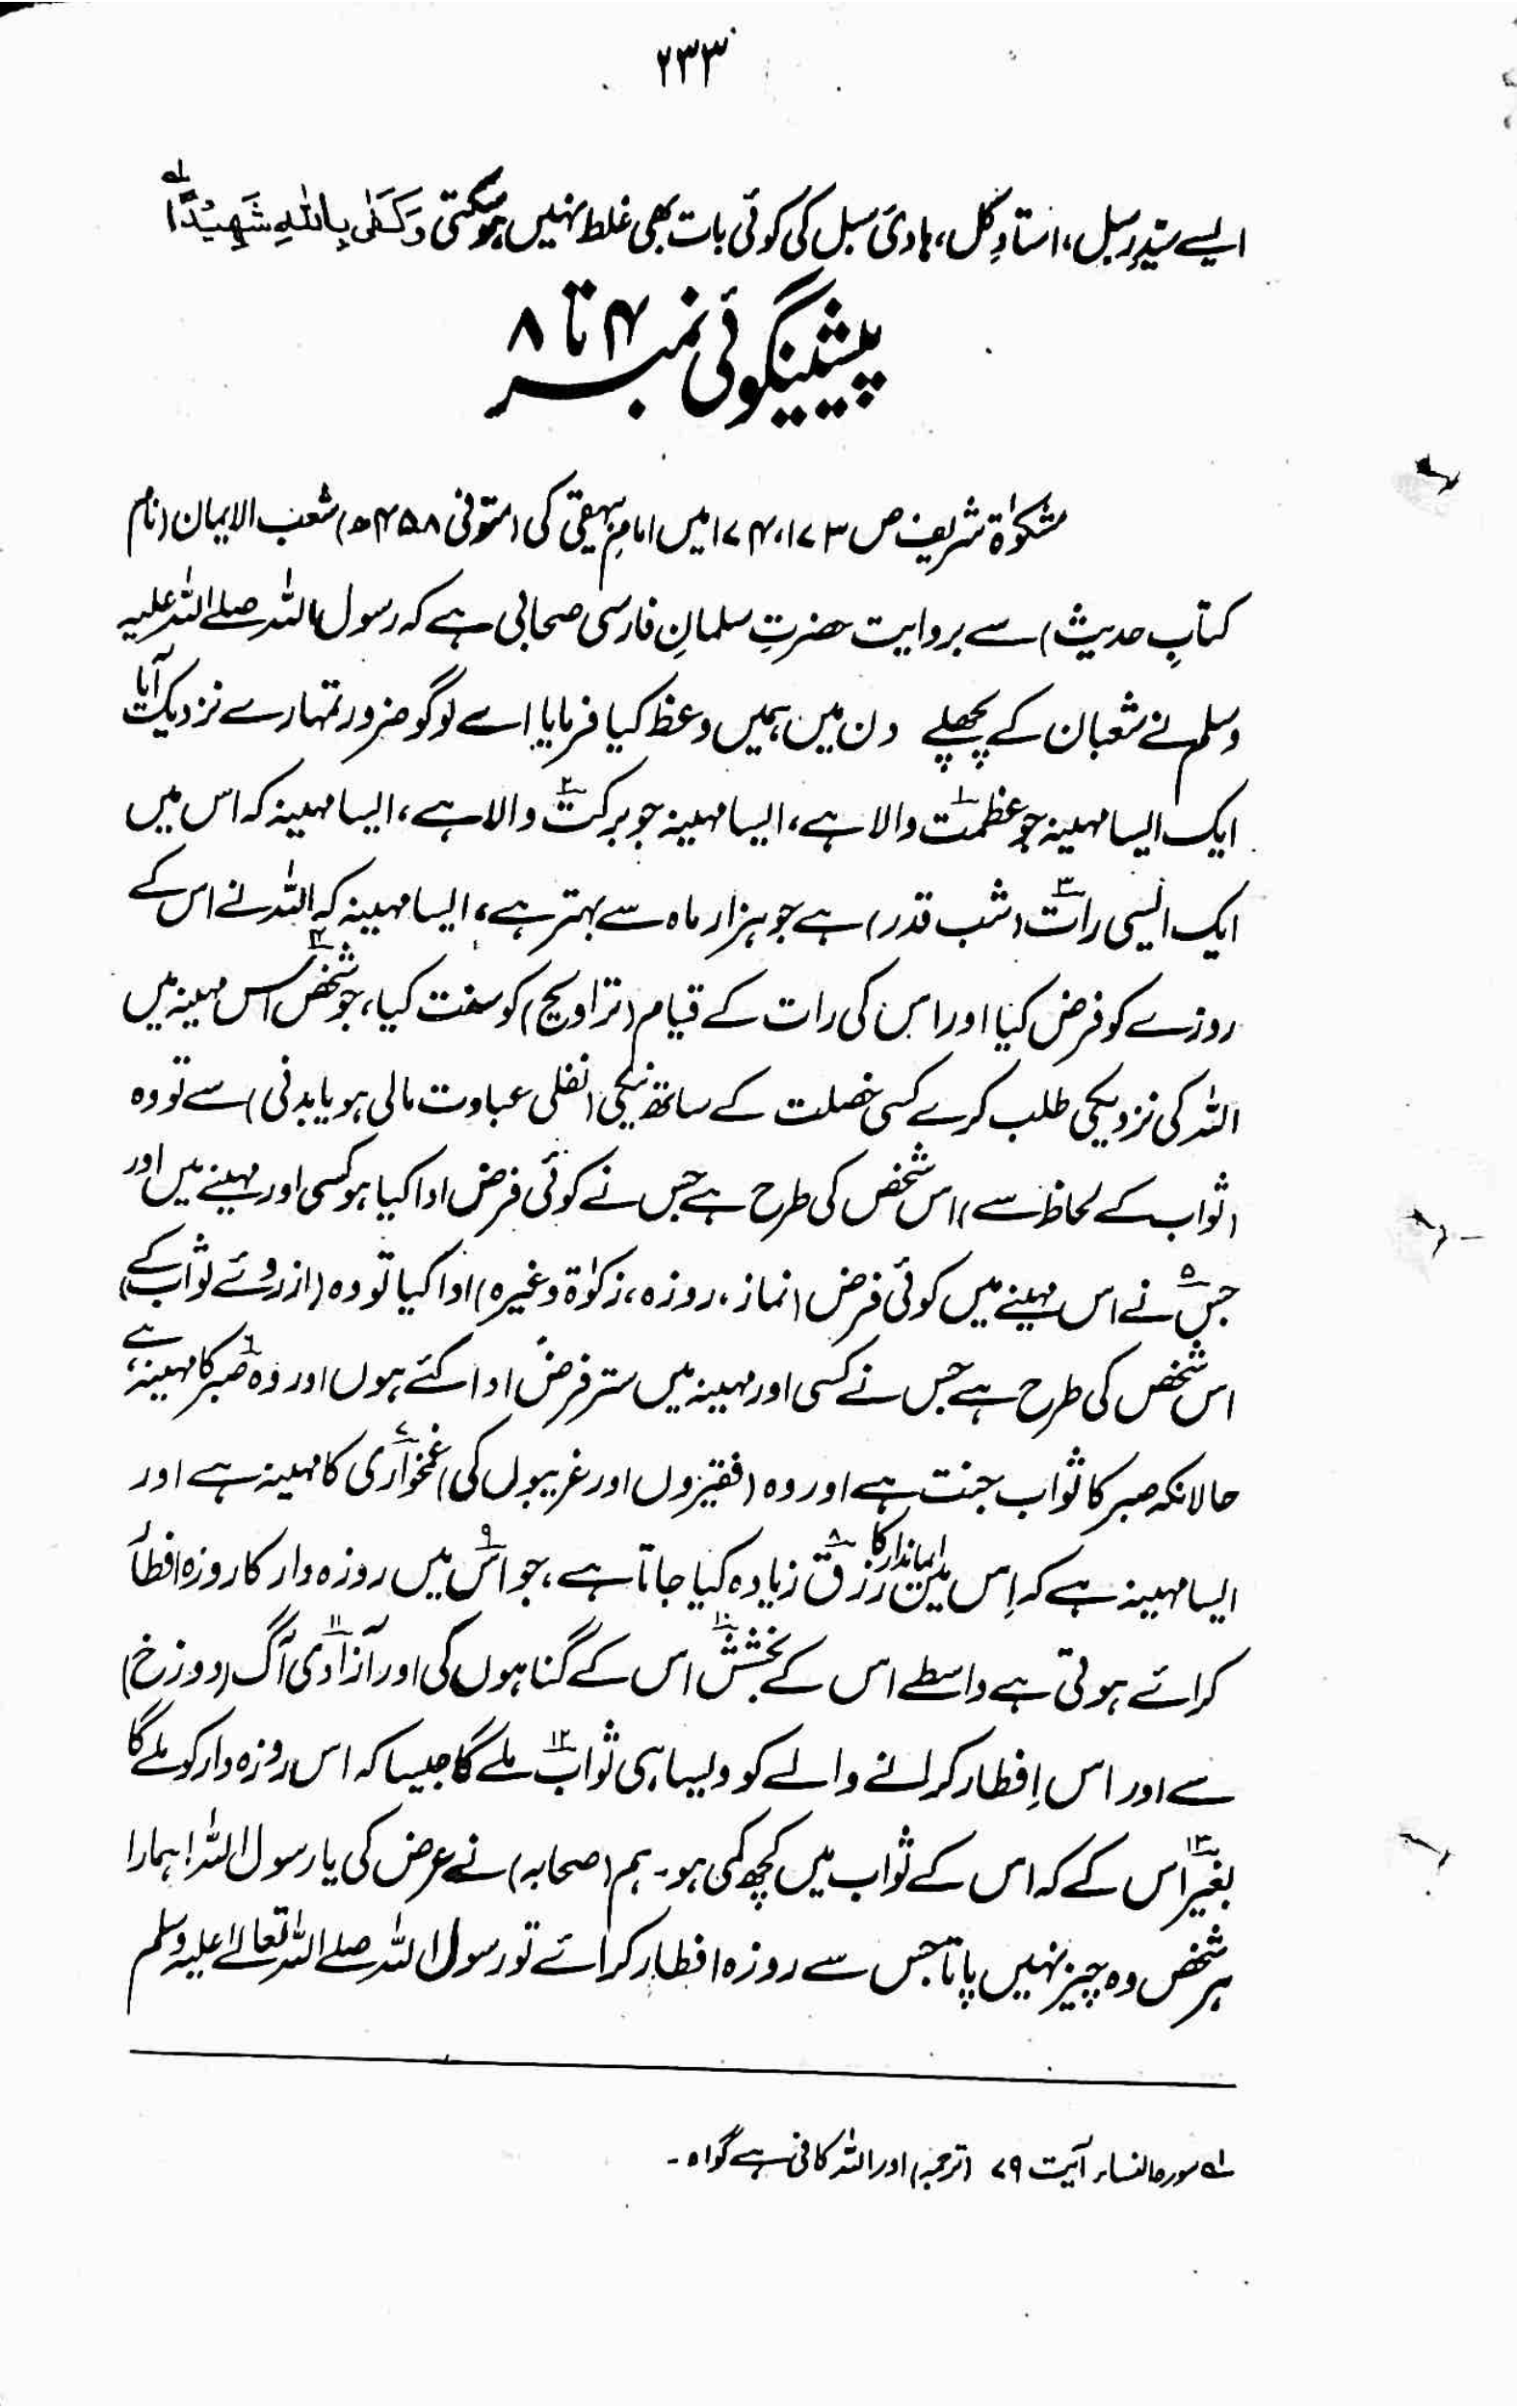 ۲۳۳
ایسے سیّدِ رسل، استادِ کل، ہادیٔ سبل کی کوئی بات بھی غلط نہیں ہو سکتی وَکَفٰی بِاللّٰہِ شَھِیْدًا ؎۱
پیشینگوئی نمبر ۴ تا ۸
مشکوٰۃ شریف ص ۱۷۳، ۱۷۴ میں امامِ بیہقی کی (متوفی ۴۵۸ھ) شعب الایمان (نام
کتابِ حدیث) سے بروایت حضرتِ سلمانِ فارسی صحابی ہے کہ رسول اللہ صلے اللہ علیہ
وسلم نے شعبان کے پچھلے دن میں ہمیں وعظ کیا فرمایا اے لوگو ضرور تمہارے نزدیک آیا
ایک ایسا مہینہ جو عظمت۱ والا ہے، ایسا مہینہ جو برکت۲ والا ہے، ایسا مہینہ کہ اس میں
ایک ایسی رات۳ (شب قدر) ہے جو ہزار ماہ سے بہتر ہے، ایسا مہینہ کہ اللہ نے اس کے
روزے کو فرض کیا اور اس کی رات کے قیام (تراویح) کو سنت کیا، جو شخص۴ اس مہینہ میں
اللہ کی نزدیکی طلب کرے کسی خصلت کے ساتھ نیکی (نفلی عبادت مالی ہو یا بدنی) سے تو وہ
(ثواب کے لحاظ سے) اس شخص کی طرح ہے جس نے کوئی فرض ادا کیا ہو کسی اور مہینے میں اور
جس۵ نے اس مہینے میں کوئی فرض (نماز، روزہ، زکوٰۃ وغیرہ) ادا کیا تو وہ (ازروئے ثواب کے)
اس شخص کی طرح ہے جس نے کسی اور مہینہ میں ستر فرض ادا کئے ہوں اور وہ صبر۶ کا مہینہ ہے،
حالانکہ صبر کا ثواب جنت ہے اور وہ (فقیروں اور غریبوں کی) غمخواری۷ کا مہینہ ہے اور
ایسا مہینہ ہے کہ اِس میں ایماندار کا رزق۸ زیادہ کیا جاتا ہے، جو اس۹ میں روزہ دار کا روزہ افطار
کرائے ہوتی ہے واسطے اس کے بخشش۱۰ اس کے گناہوں کی اور آزادی۱۱ آگ (دوزخ)
سے اور اس اِفطار کرانے والے کو ویسا ہی ثواب۱۲ ملے گا جیسا کہ اس روزہ دار کو ملے گا
بغیر۱۳ اس کے کہ اس کے ثواب میں کچھ کمی ہو۔ ہم (صحابہ) نے عرض کی یا رسول اللہ! ہمارا
ہر شخص وہ چیز نہیں پاتا جس سے روزہ افطار کرائے تو رسول اللہ صلے اللہ تعالےٰ علیہ وسلم
؎۱ سورہ النساء آیت ۷۹ (ترجمہ) اور اللہ کافی ہے گواہ۔